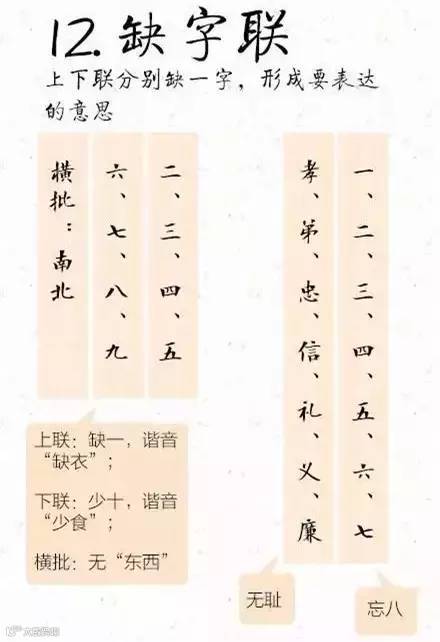 12.缺字联
上下联分别缺一字，形成要表达
的意思
二、三、四、五
六、七、八、九
横批：南北
上联：缺一，谐音
“缺衣”；
下联：少十，谐音
“少食”；
横批：无“东西”
一、二、三、四、五、六、七
孝、弟、忠、信、礼、义、廉
忘八
无耻